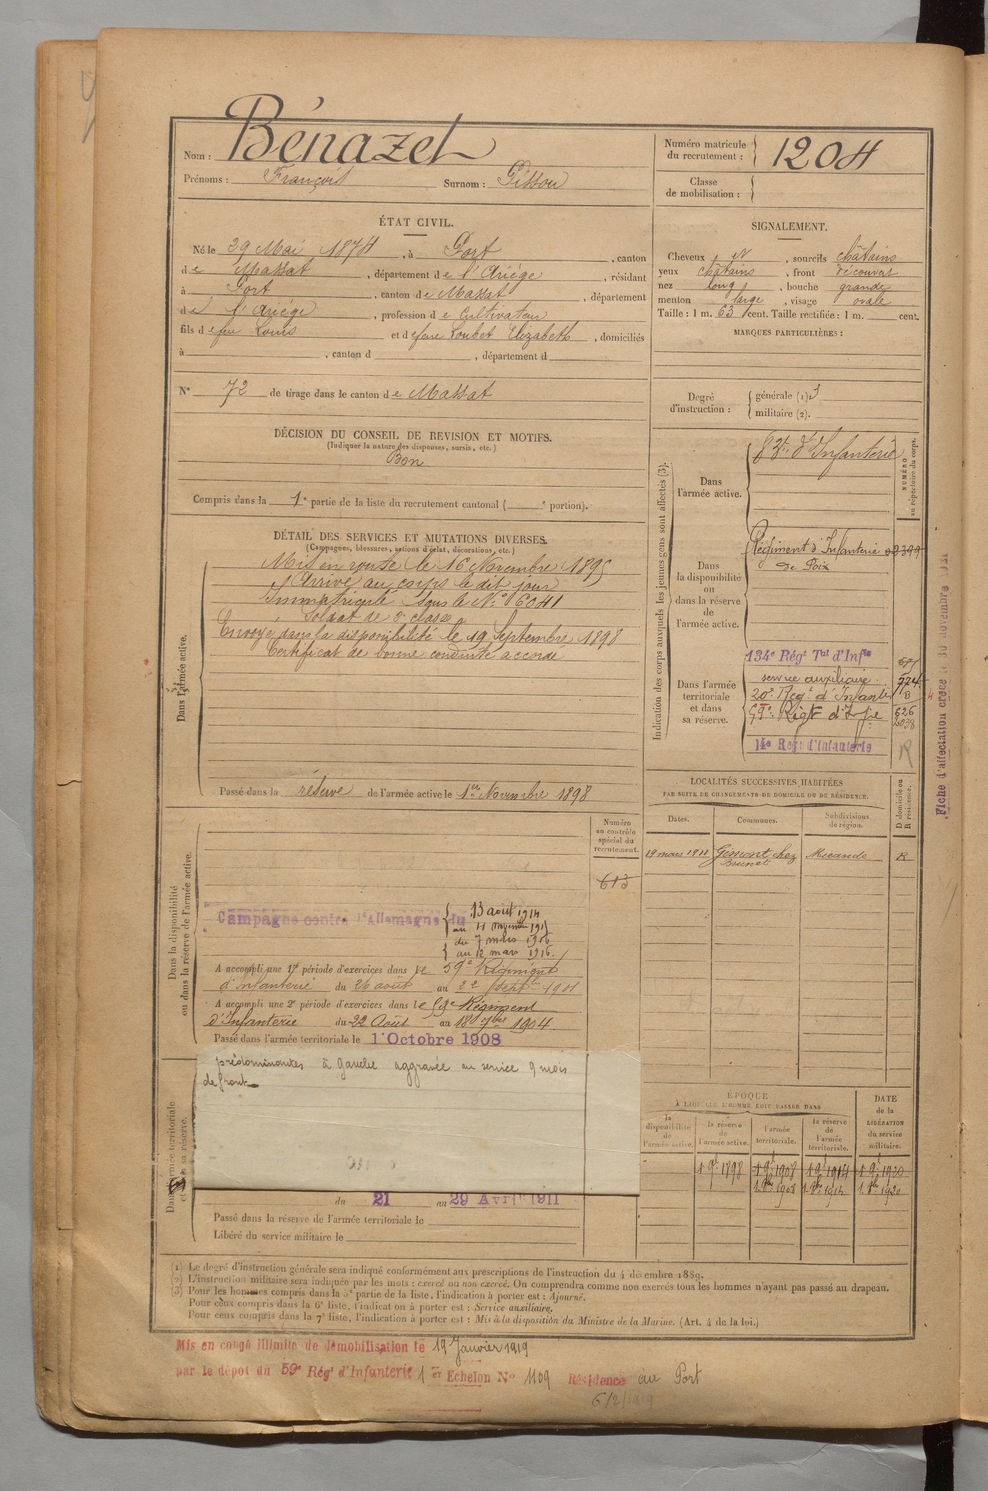 Nom : Bénazet
Prénoms : François Surnom : Pissou
Numéro matricule du recrutement : 1204
Classe de mobilisation :
ÉTAT CIVIL.
Né le 29 Mai 1874, à Port, canton
de Massat, département de l'Ariége, résidant
à Port, canton de Massat, département
de l'Ariége, profession de Cultivateur
fils de feu Louis et de feue Loubet Elizabeth, domiciliés
à , canton d , département d
SIGNALEMENT.
Cheveux N, sourcils châtains
yeux châtains, front découvert
nez long, bouche grande
menton large, visage ovale
Taille : 1 m. 63 cent. Taille rectifiée : 1 m. cent.
MARQUES PARTICULIÈRES :
N° 72 de tirage dans le canton de Massat
Degré d'instruction : générale (1) 3
militaire (2).
DÉCISION DU CONSEIL DE REVISION ET MOTIFS.
(Indiquer la nature des dispenses, sursis, etc.)
Bon
Compris dans la 1e partie de la liste du recrutement cantonal ( e portion).
DÉTAIL DES SERVICES ET MUTATIONS DIVERSES.
(Campagnes, blessures, actions d'éclat, décorations, etc.)
Dans l'armée active.
Mis en route le 16 Novembre 1895
Arrivé au corps le dit jour
Immatriculé sous le N° 6041
Soldat de 2e classe
Envoyé dans la disponibilité le 19 Septembre 1898
Certificat de bonne conduite accordé
Passé dans la réserve de l'armée active le 1er Novembre 1898
Indication des corps auxquels les jeunes gens sont affectés (3).
NUMÉRO au répertoire du corps.
Dans l'armée active.
d'Infanterie
Dans la disponibilité ou dans la réserve de l'armée active.
Régiment d'Infanterie
de Foix
Dans l'armée territoriale et dans sa réserve.
134e Régt Tal d'Infie
service auxiliaire
20e Regt d'Infante
59e Régt d'Infie
14e Régt d'Infanterie
R
Fiche d'affectation créée le 30 novembre
LOCALITÉS SUCCESSIVES HABITÉES
PAR SUITE DE CHANGEMENTS DE DOMICILE OU DE RÉSIDENCE.
Dates. Communes. Subdivisions de région. D domicile ou R résidence.
19 mars 1911 Gimont chez Brunet Mirande R
Dans la disponibilité ou dans la réserve de l'armée active.
Numéro au contrôle spécial du recrutement.
613
Campagne contre l'Allemagne du 13 août 1914
au 11 novembre
du 7 mars 1916
au 12 mars 1916.
A accompli une 1re période d'exercices dans le 59e Régiment
d'infanterie du 26 août au 22 Sept 1901
A accompli une 2e période d'exercices dans le 59e Régiment
d'Infanterie du 22 Août au 18 7bre 1904
Passé dans l'armée territoriale le 1 Octobre 1908
prédominantes à gauche aggravée au service 9 mois
de front
Dans l'armée territoriale et dans sa réserve.
du 21 au 29 Avril 1911
Passé dans la réserve de l'armée territoriale le
Libéré du service militaire le
ÉPOQUE
À LAQUELLE L'HOMME DOIT PASSER DANS
la disponibilité de l'armée active. la réserve de l'armée active. l'armée territoriale. la réserve de l'armée territoriale. DATE de la LIBÉRATION du service militaire.
1 9b 1898 1 9b 1908 1 9b 1914 1 9b 1920
1. 8bre 1908 1. 8bre 1914 1. 8bre 1920
(1) Le degré d'instruction générale sera indiqué conformément aux prescriptions de l'instruction du 4 décembre 1889.
(2) L'instruction militaire sera indiquée par les mots : exercé ou non exercé. On comprendra comme non exercés tous les hommes n'ayant pas passé au drapeau.
(3) Pour les hommes compris dans la 5e partie de la liste, l'indication à porter est : Ajourné.
Pour ceux compris dans la 6e liste, l'indication à porter est : Service auxiliaire.
Pour ceux compris dans la 7e liste, l'indication à porter est : Mis à la disposition du Ministre de la Marine. (Art. 4 de la loi.)
Mis en congé illimité de démobilisation le 19 Janvier 1919
par le dépot du 59e Régt d'Infanterie 1er Echelon N° 1109 Résidence au Port
6/2/1919